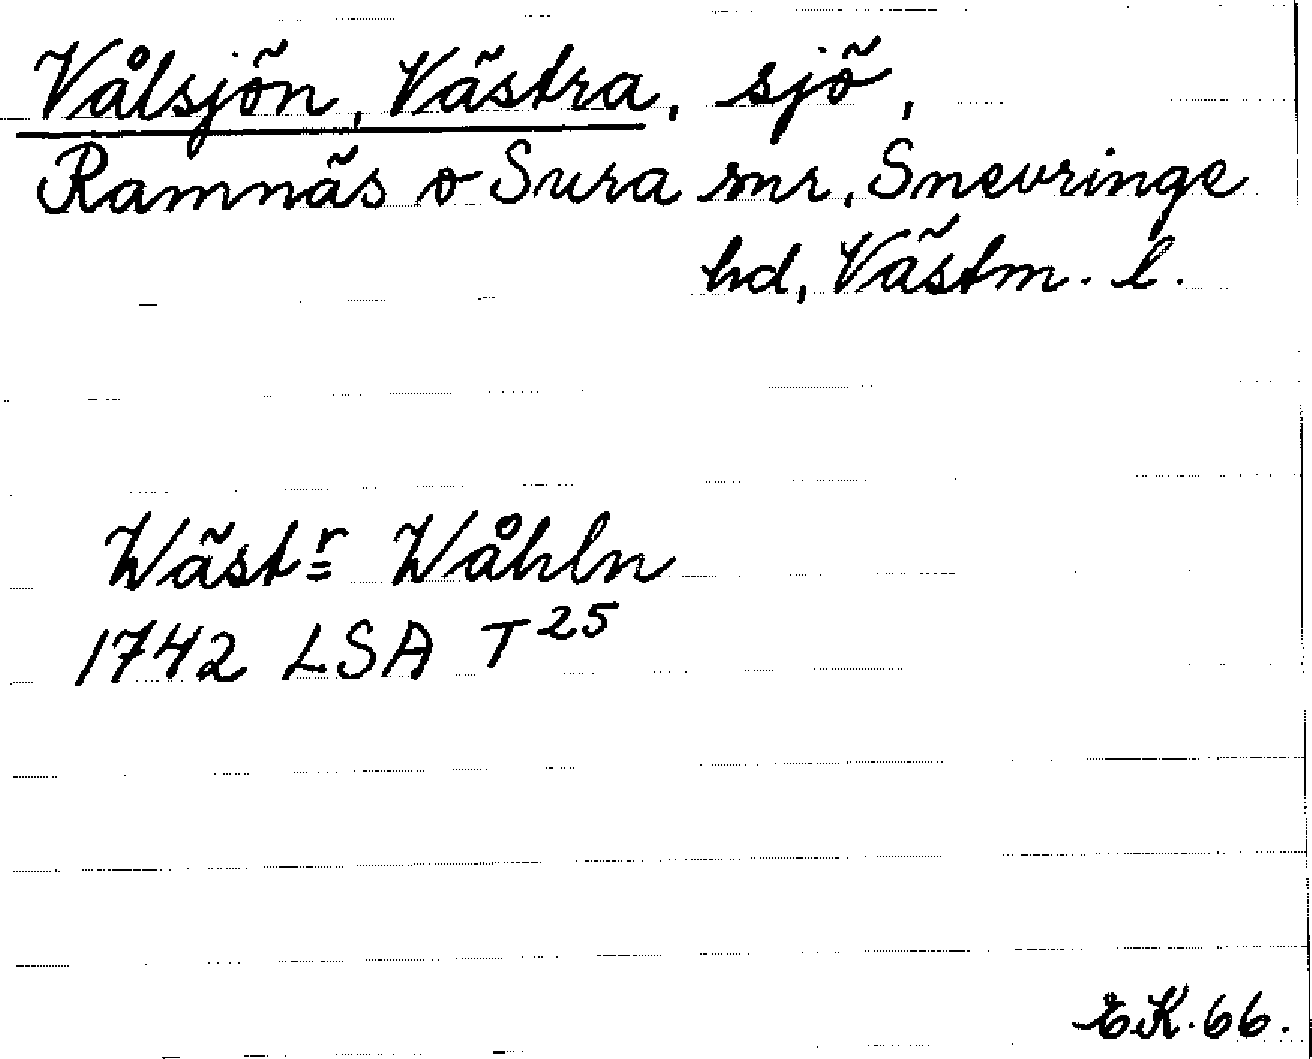 Vålsjön, Västra, sjö,
Ramnäs o Sura snr, Snevringe
hd, Västm. l.
Wästr Wåhln
1742 LSA T25
EK. 66.